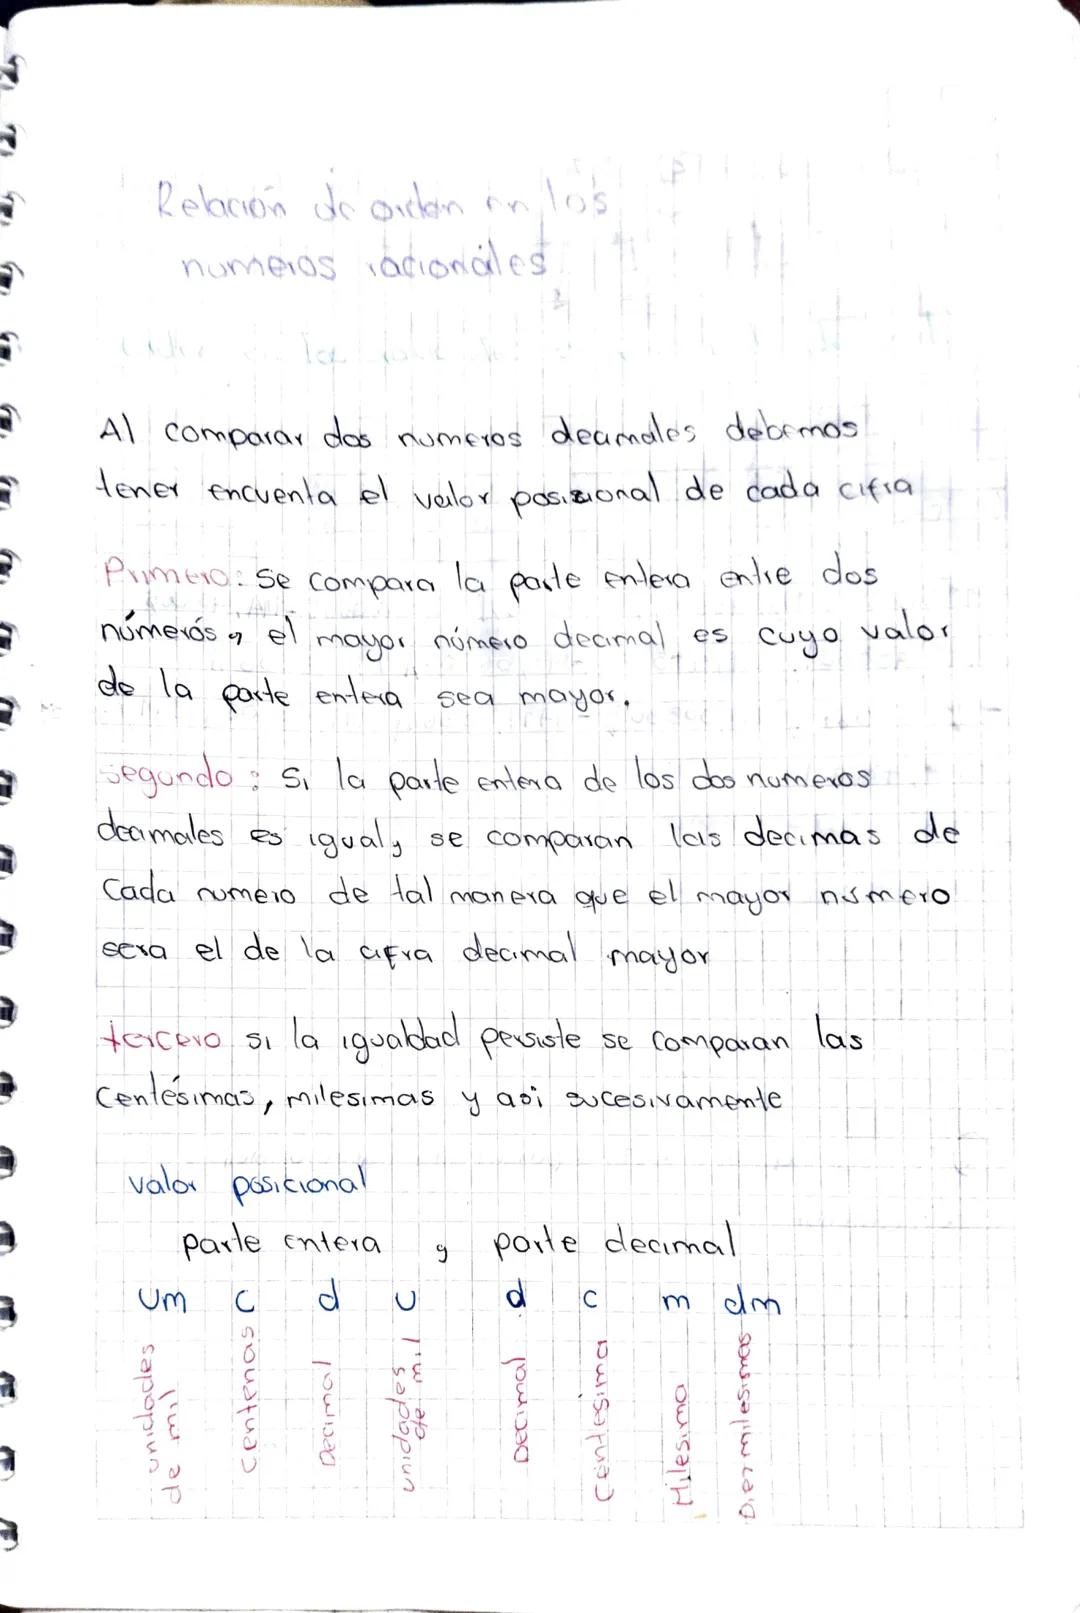 Relación de orden en los
numeros racionales
Al comparar dos numeros decimales debemos
tener encuenta el valor posizional de cada cifra
Primero: Se compara la parte entera entre dos
números, el mayor número decimal es cuyo valor
de la parte entera sea mayor.
segundo: Si la parte entera de los dos numeros
decimales es igual, se comparan las decimas de
Cada numero de tal manera que el mayor número
sera el de la cifra decimal mayor
tercero si la igualdad persiste se comparan las
Centésimas, milesimas y asi sucesivamente
valor posicional
parte entera , parte decimal
Um C d U d C m dm
unidades de mil
Centenas
Decimal
unidades de mil
Decimal
Centesima
Milesima
Diezmilesimas